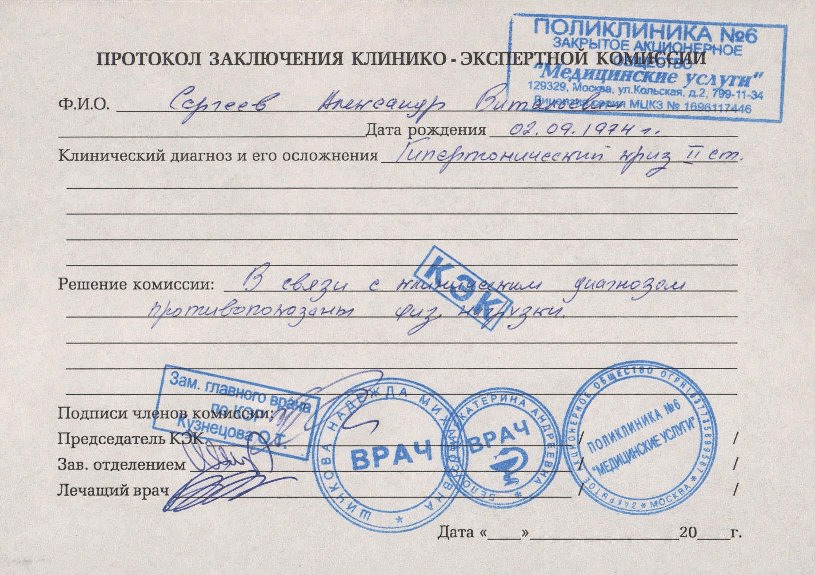 ПОЛИКЛИНИКА №6
ЗАКРЫТОЕ АКЦИОНЕРНОЕ
ОБЩЕСТВО
"Медицинские услуги"
129329, Москва, ул.Кольская, д.2, 799-11-34
Лицензия серия МЦКЗ № 1696117446
ПРОТОКОЛ ЗАКЛЮЧЕНИЯ КЛИНИКО - ЭКСПЕРТНОЙ КОМИССИИ
Ф.И.О. Сергеев Александр Витальевич
Дата рождения 02.09.1974 г.
Клинический диагноз и его осложнения Гипертонический криз II ст.
КЭК
Решение комиссии: В связи с клиническим диагнозом
противопоказаны физ. нагрузки.
Зам. главного врача
по КЭР
Кузнецова О.Т.
Подписи членов комиссии:
Председатель КЭК / /
Зав. отделением / /
Лечащий врач / /
ШИНКОВА НАДЕЖДА МИХАЙЛОВНА
ВРАЧ
ЕКАТЕРИНА АНДРЕЕВНА
ВРАЧ
ЗАКРЫТОЕ АКЦИОНЕРНОЕ ОБЩЕСТВО ОГРН
ПОЛИКЛИНИКА №6
"МЕДИЦИНСКИЕ УСЛУГИ"
* МОСКВА *
Дата «___»____________20___г.